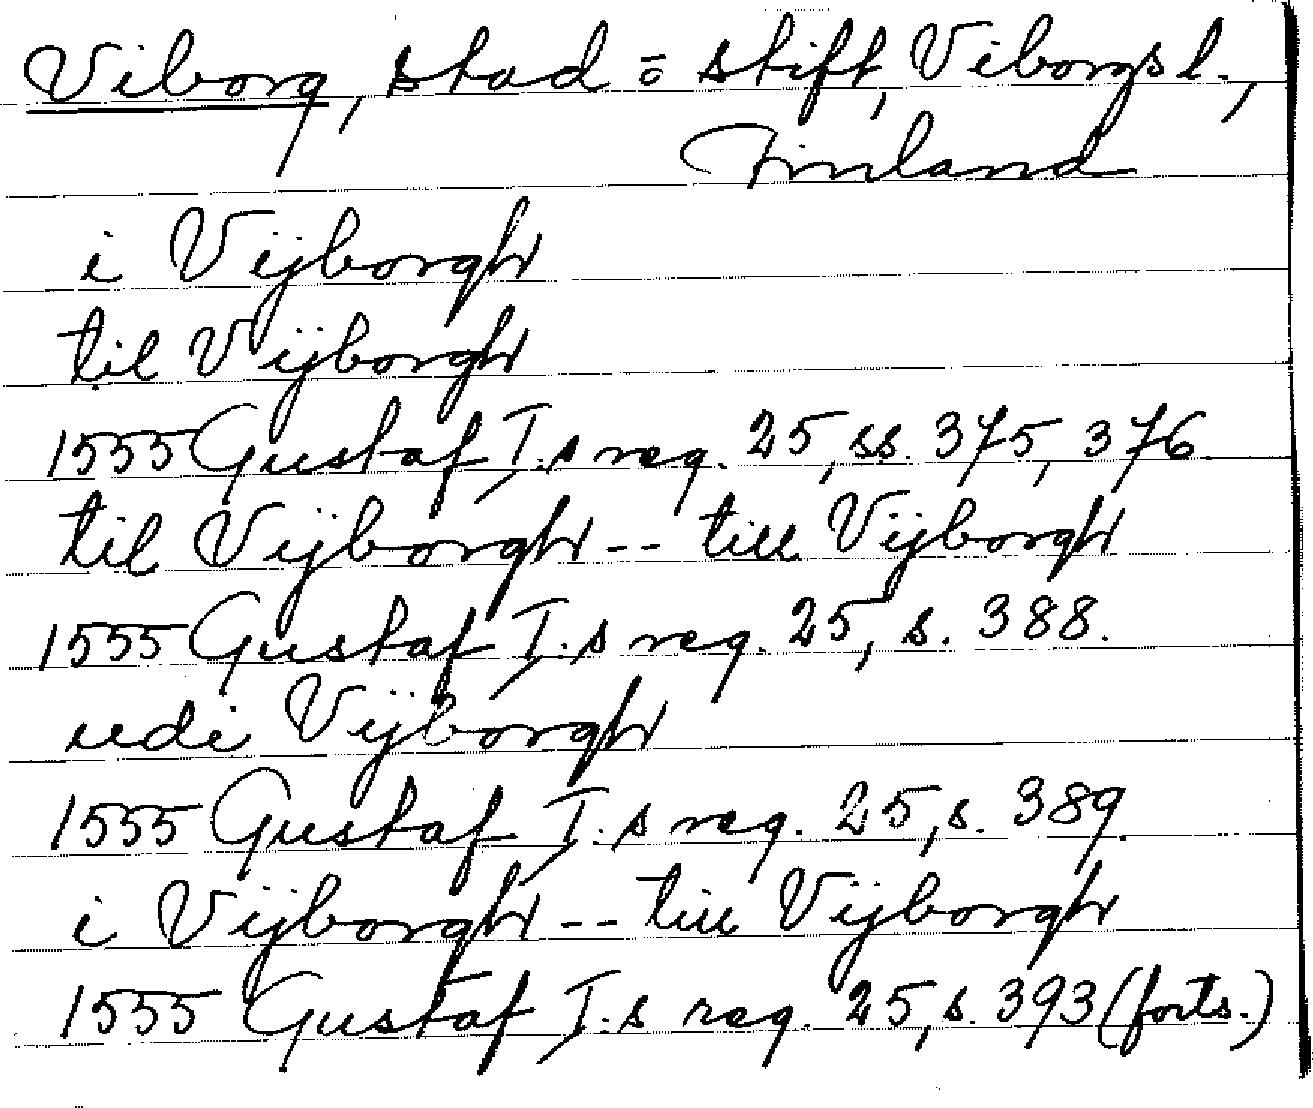 Viborg, stad o stift, Viborgs l.,
Finland
i Vijborgh
til Vijborgh
1555 Gustaf I:s reg. 25, ss. 375, 376.
til Vijborgh -- till Vijborgh
1555 Gustaf I:s reg. 25, s. 388.
udi Vijborgh
1555 Gustaf I:s reg. 25, s. 389.
i Vijborgh -- till Vijborgh
1555 Gustaf I:s reg. 25, s. 393 (forts.)